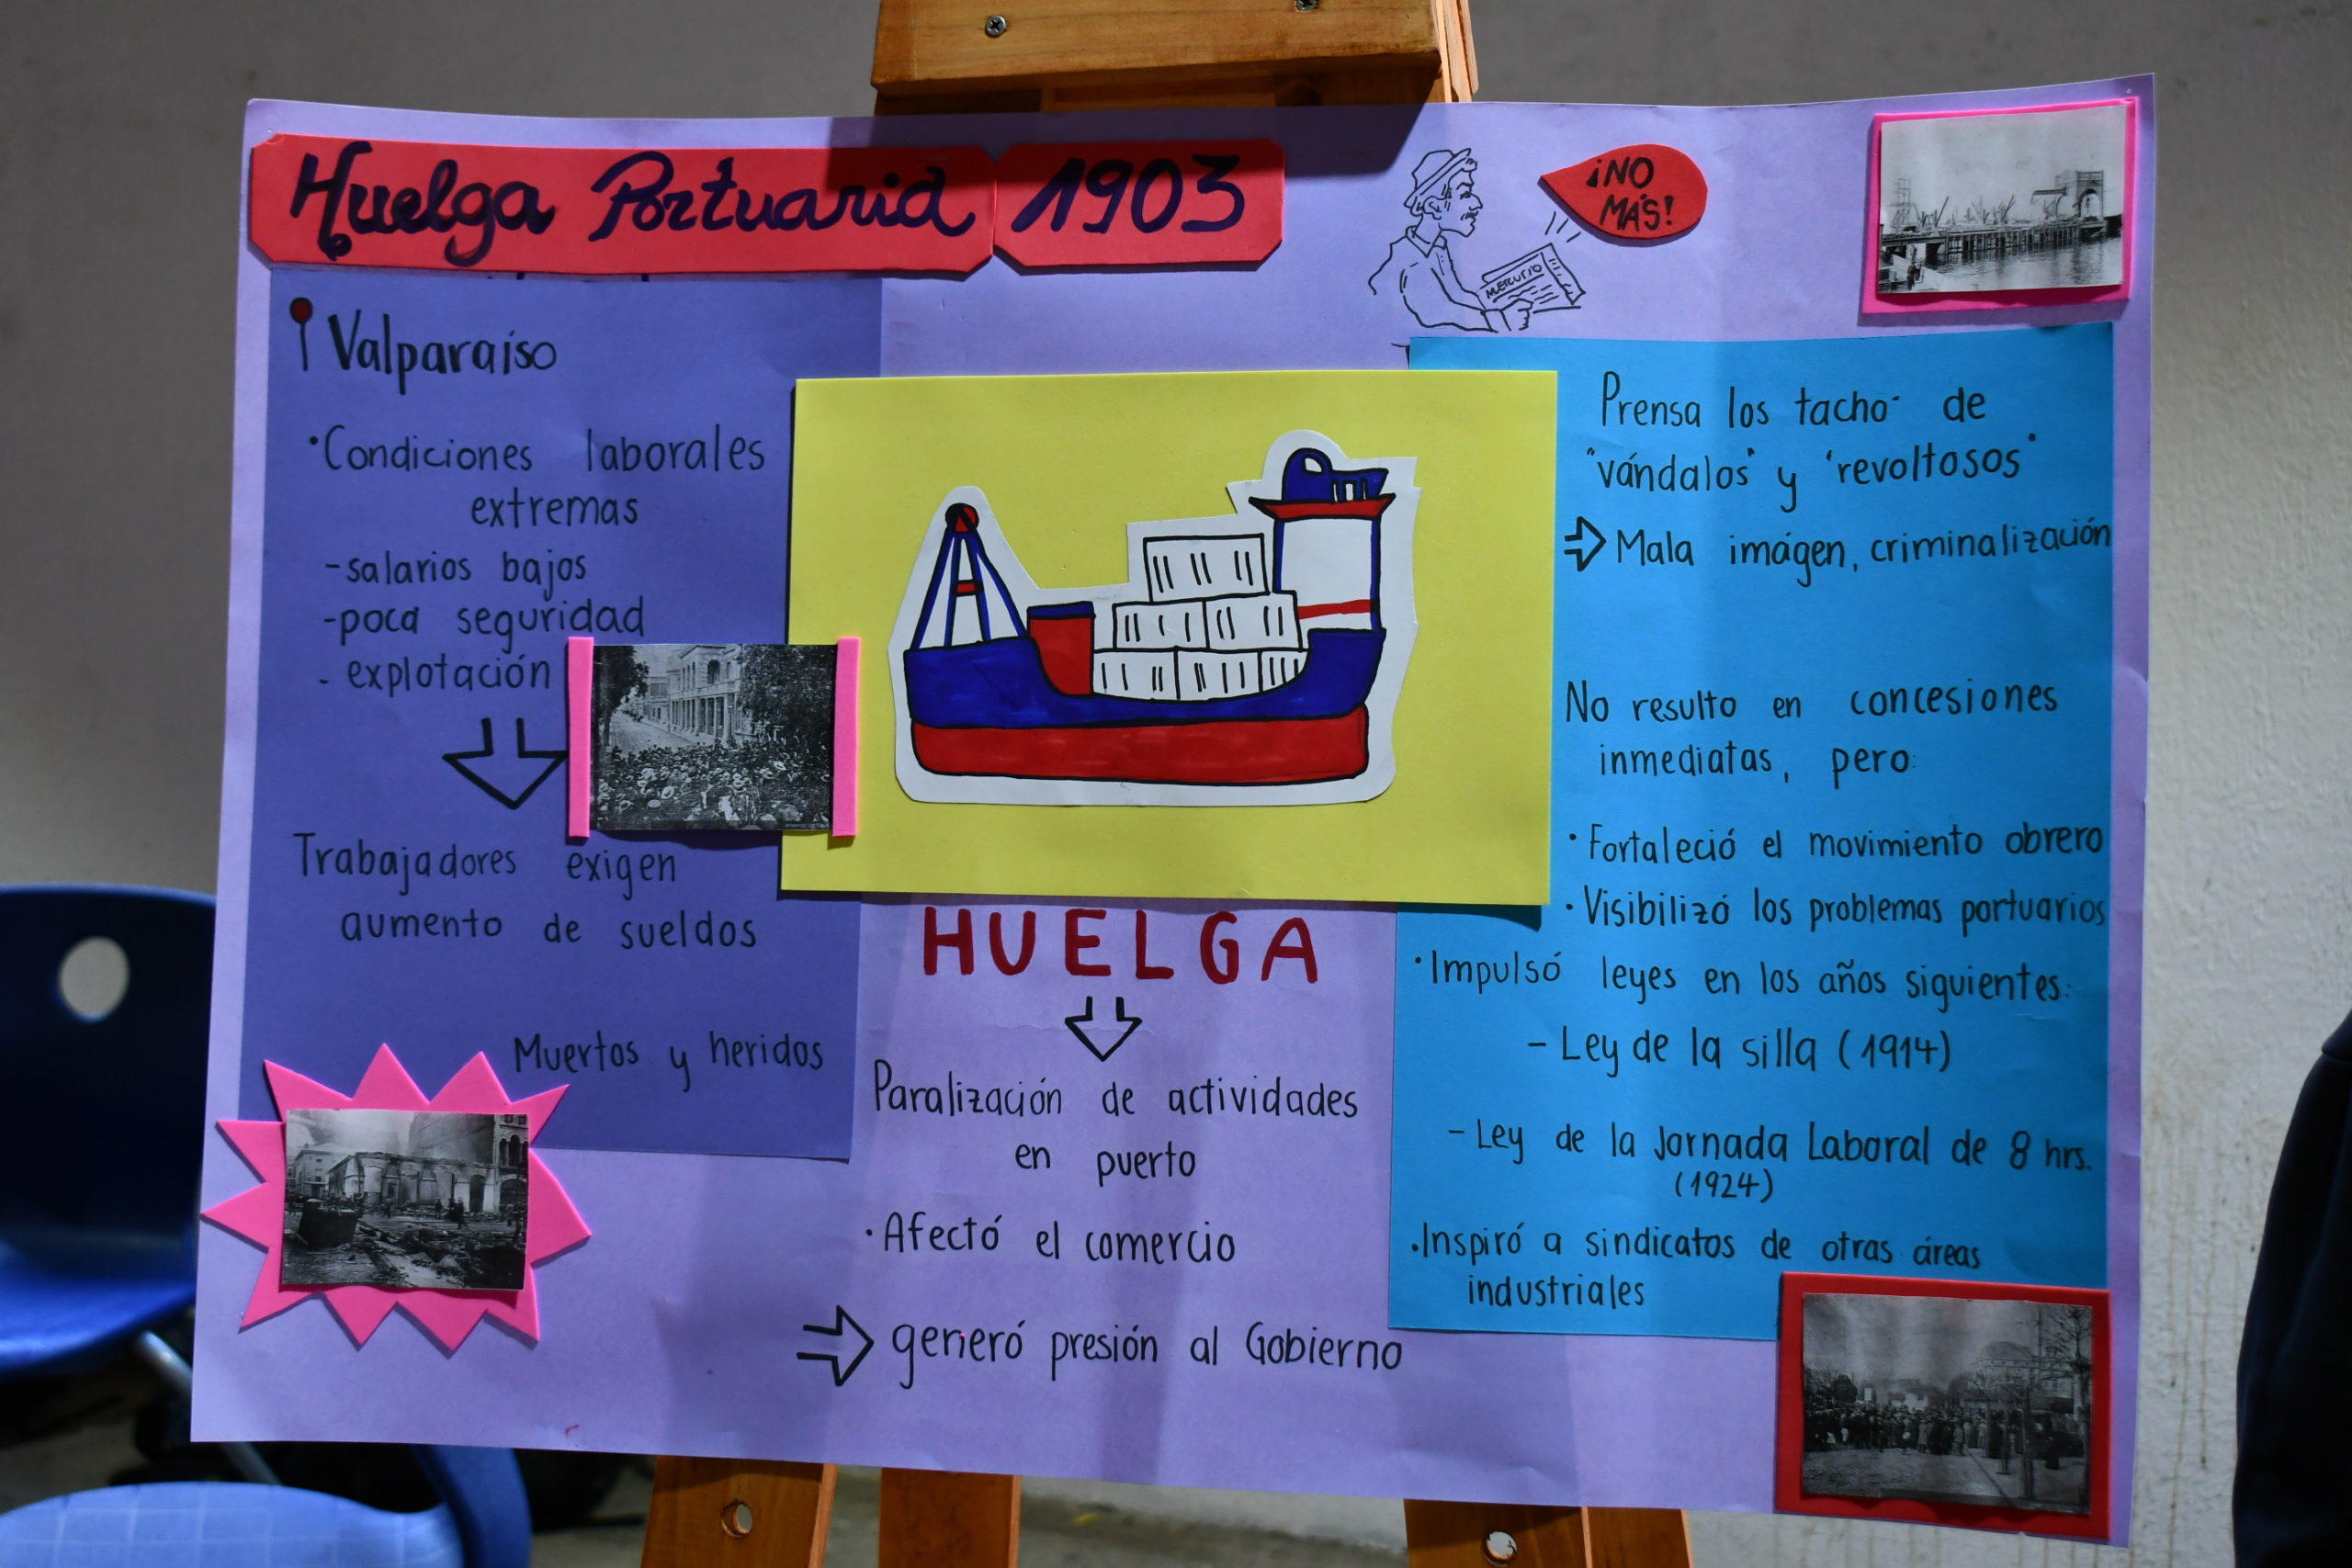 Huelga Portuaria 1903
¡NO
MÁS!
MERCURIO
Valparaíso
·Condiciones laborales
extremas
-salarios bajos
-poca seguridad
- explotación
Trabajadores exigen
aumento de sueldos
Muertos y heridos
HUELGA
Paralización de actividades
en puerto
·Afectó el comercio
generó presión al Gobierno
Prensa los tacho· de
"vándalos" y 'revoltosos"
Mala imágen, criminalización
No resulto en concesiones
inmediatas, pero:
·Fortaleció el movimiento obrero
·Visibilizó los problemas portuarios
·Impulsó leyes en los años siguientes:
- Ley de la silla (1914)
- Ley de la Jornada Laboral de 8 hrs.
(1924)
·Inspiró a sindicatos de otras áreas
industriales